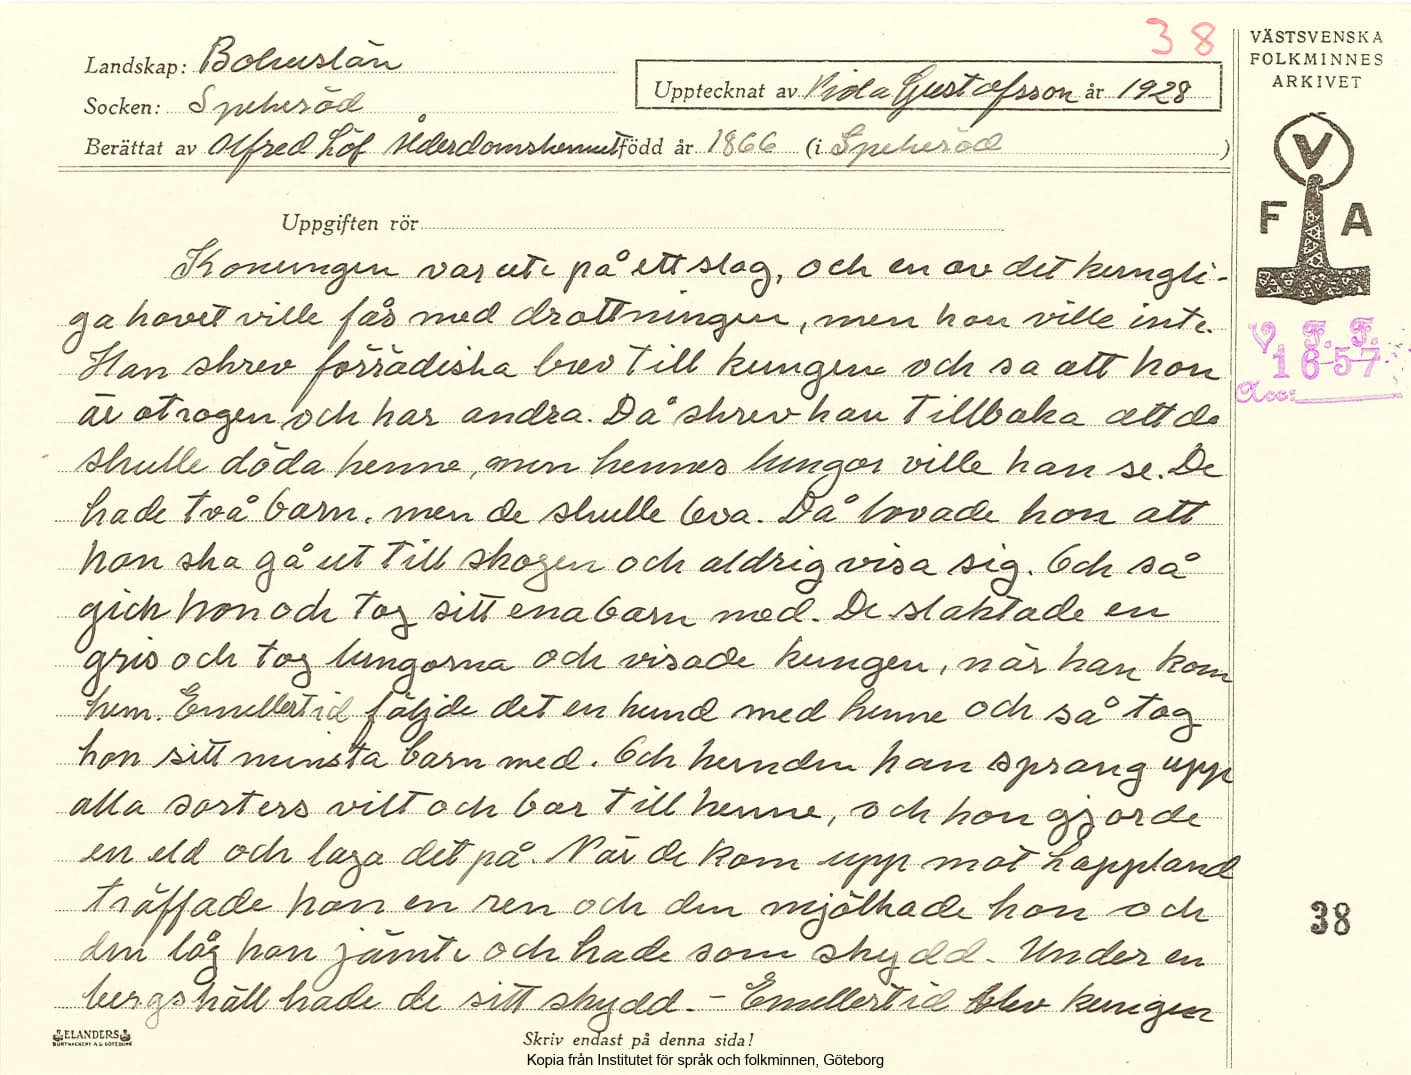 38
Landskap: Bohuslän
Socken: Spekeröd
Upptecknat av Viola Gustafsson år 1928
Berättat av Alfred Löf Ålderdomshemmet född år 1866 (i Spekeröd )
VÄSTSVENSKA
FOLKMINNES
ARKIVET
V
F A
V. F. F.
1657
Acc:
Uppgiften rör
Konungen var ute på ett slag, och en av det kungli-
ga hovet ville får med drottningen, men hon ville inte.
Han skrev förrädiska brev till kungen och sa att hon
är otrogen och har andra. Då skrev han tillbaka att de
skulle döda henne, men hennes lungor ville han se. De
hade två barn. men de skulle leva. Då lovade hon att
hon ska gå ut till skogen och aldrig visa sig. Och så
gick hon och tog sitt ena barn med. De slaktade en
gris och tog lungorna och visade kungen, när han kom
hem. Emellertid följde det en hund med henne och så tog
hon sitt minsta barn med. Och hunden han sprang upp
alla sorters vilt och bar till henne, och hon gjorde
en eld och laga det på. När de kom upp mot Lappland
träffade hon en ren och den mjölkade hon och
den låg hon jämte och hade som skydd. Under en
bergshäll hade de sitt skydd. - Emellertid blev kungen
38
ELANDERS
Skriv endast på denna sida!
Kopia från Institutet för språk och folkminnen, Göteborg